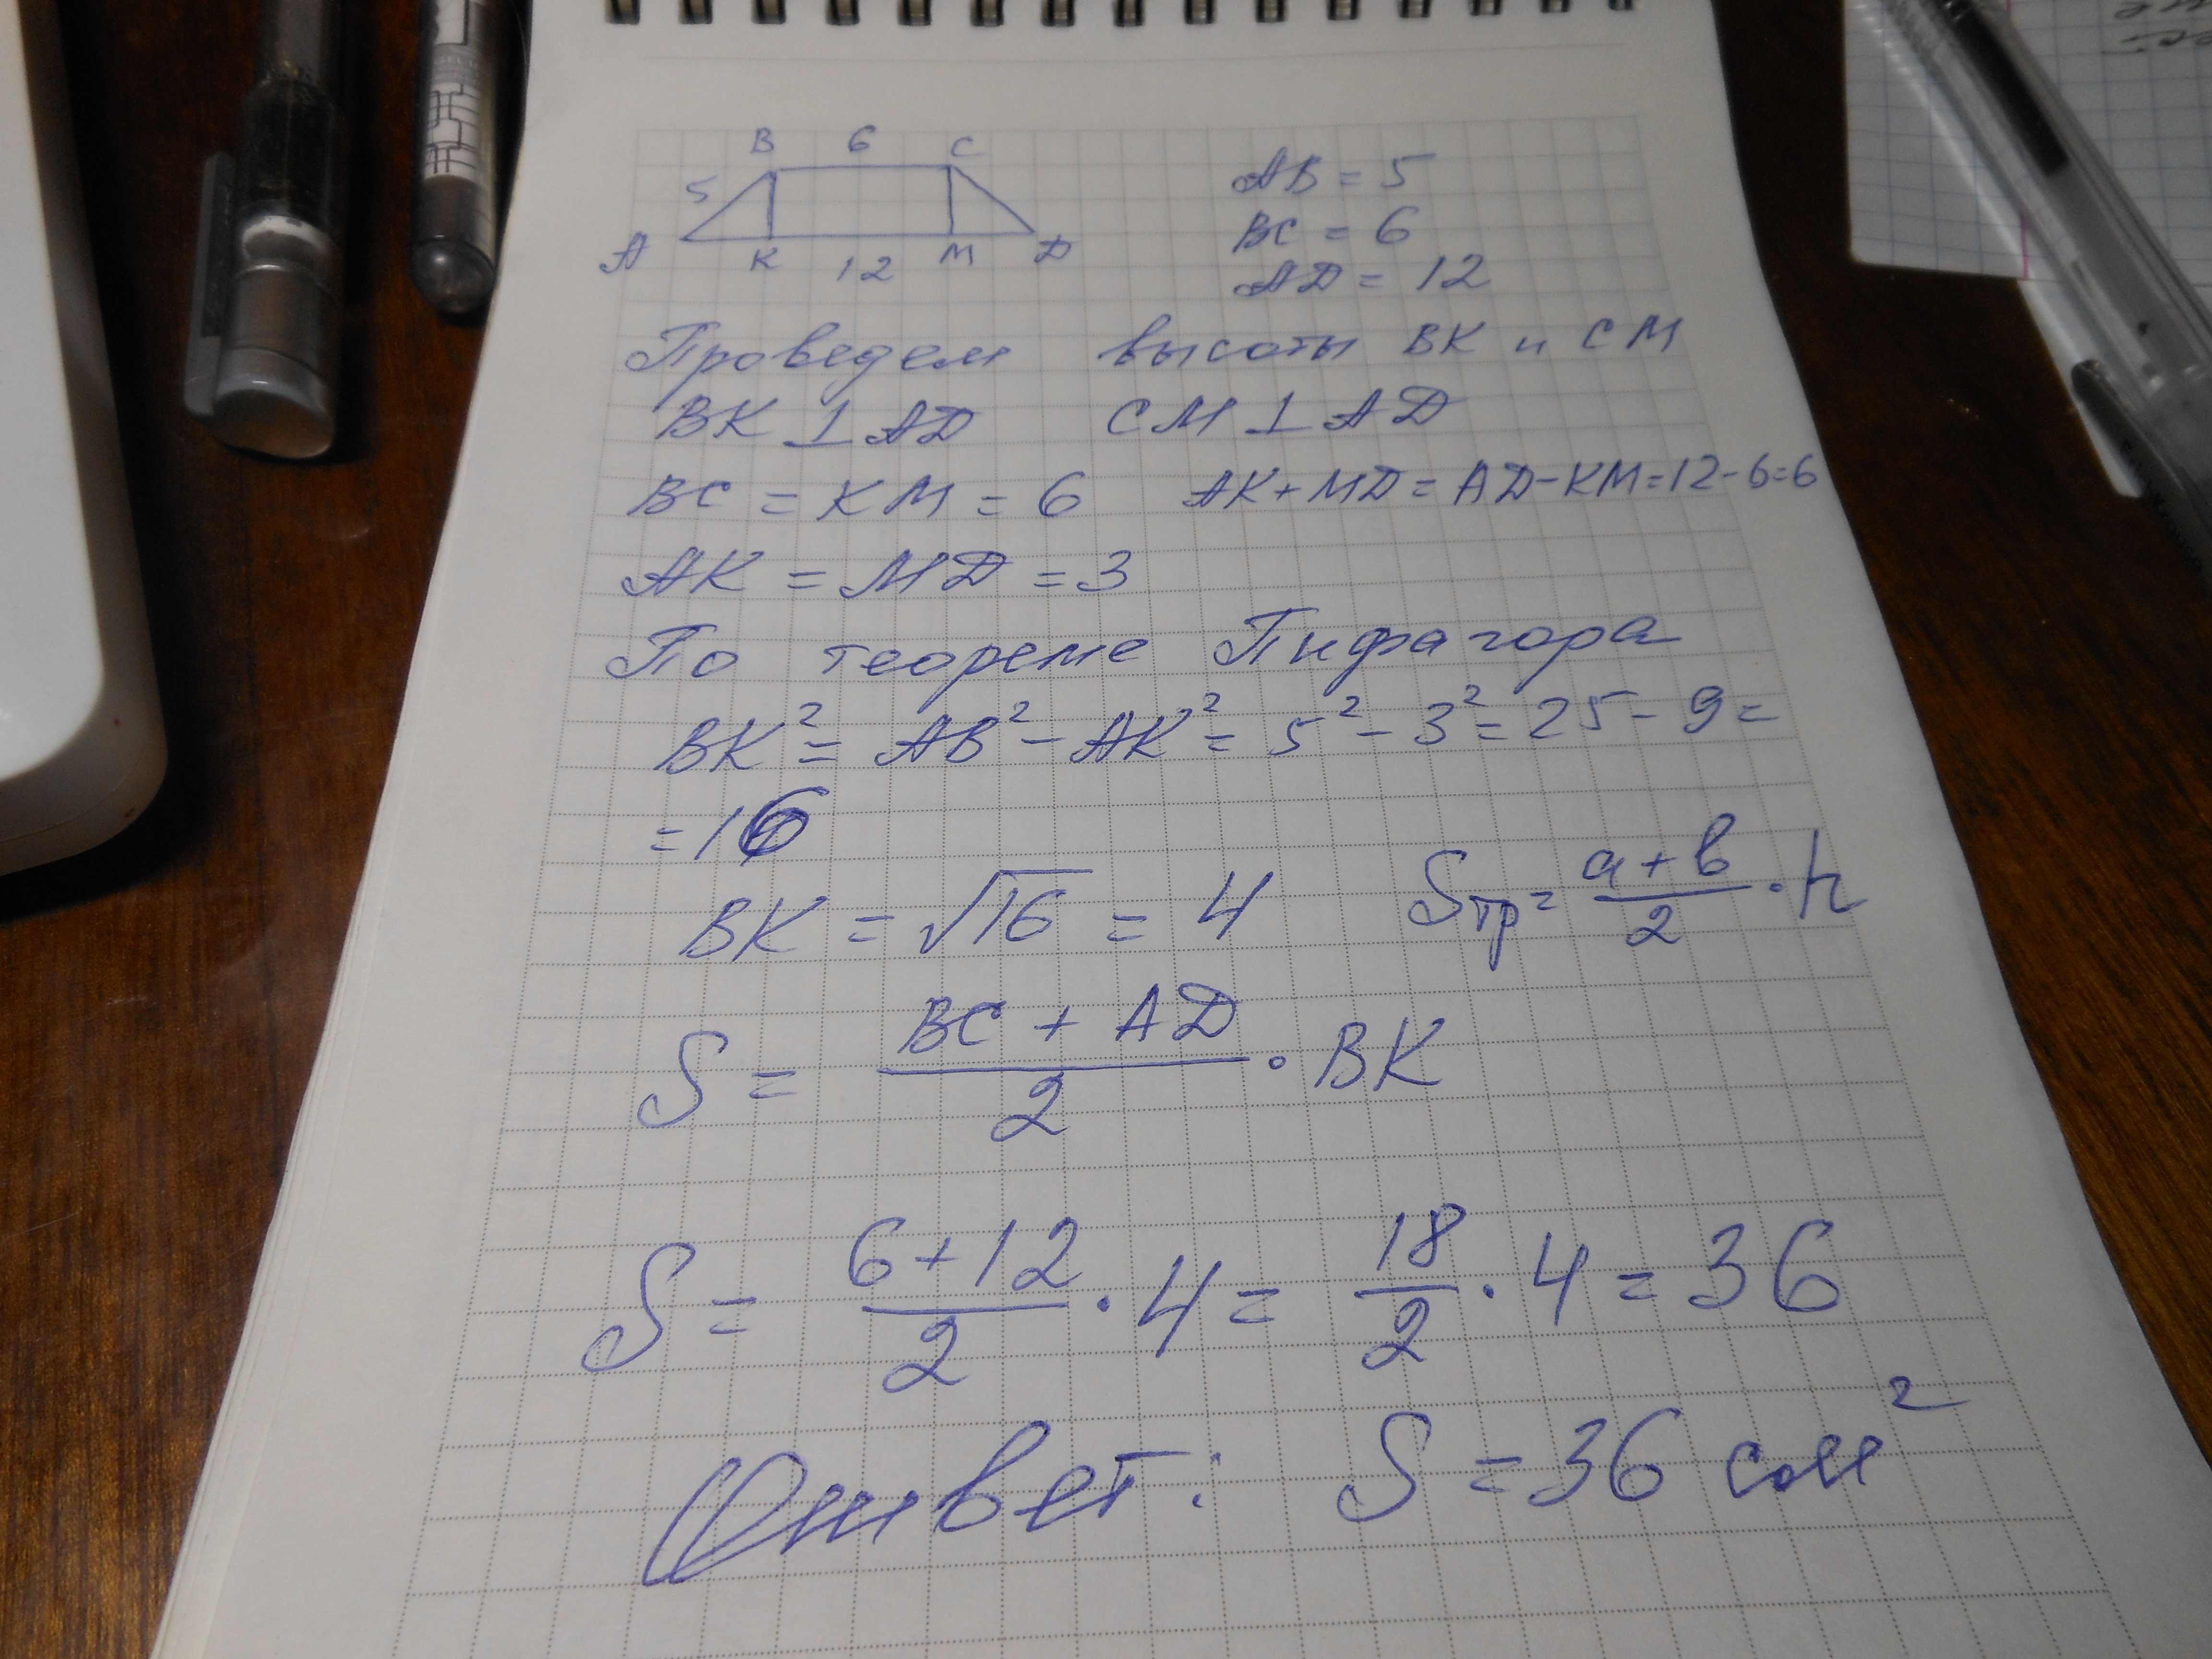 B 6 C
5
A K 12 M D
AB = 5
BC = 6
AD = 12
Проведем высоты BK и CM
BK ⊥ AD CM ⊥ AD
BC = KM = 6 AK + MD = AD - KM = 12 - 6 = 6
AK = MD = 3
По теореме Пифагора
BK² = AB² - AK² = 5² - 3² = 25 - 9 =
= 16
BK = √16 = 4 Sтр = (a + b)/2 · h
S = (BC + AD)/2 · BK
S = (6 + 12)/2 · 4 = 18/2 · 4 = 36
Ответ: S = 36 см²